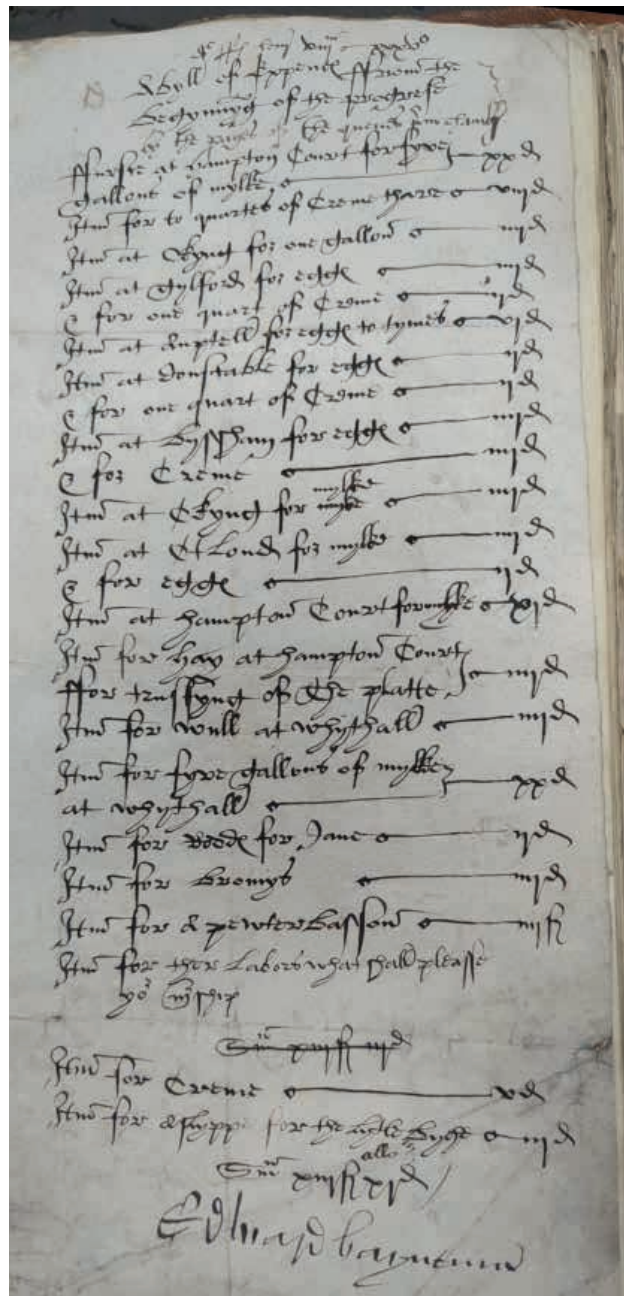 A byll of Expencs ffrom the
begynnyng of the progresse
by the pages of the quenes
ffurste at hampton Court for fyve
gallons of mylke xxd
Itm for to quartes of Creme thare viijd
Itm at Okyng for one gallon iiijd
Itm at gylford for egges iiijd
& for one quart of Creme iijd
Itm at Amptell for egges to tymes vjd
Itm at donstable for egges ijd
& for one quart of Creme ijd
Itm at bysham for egges iiijd
& for Creme iiijd
Itm at Okyng for mylke iiijd
Itm at for mylke iiijd
& for egges ijd
Itm at hampton Court for mylke xjd
Itm for hay at hampton Court
ffor trussyng of the platte iiijd
Itm for wull at whythall iiijd
Itm for fyve gallons of mylke
at whythall xxd
Itm for for Jane ijd
Itm for bromys iijd
Itm for a pewter basson iiijs
Itm for ther labors what shall please
yor
Sm xiijs iijd
Itm for Creme vd
Itm for a shyppe for the iijd
Sm xiijs xjd
Edward baynton